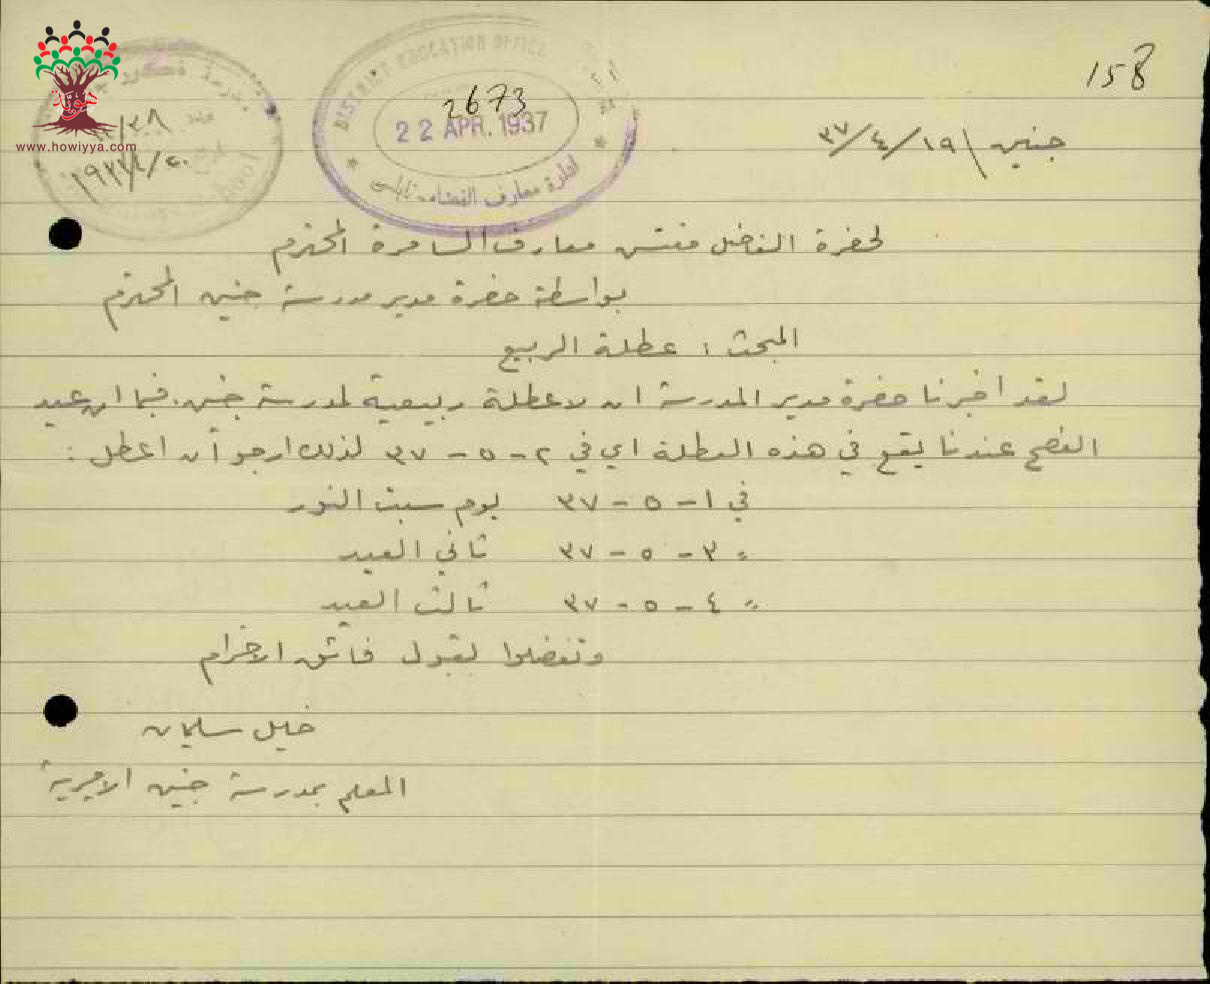 158
جنين ١٩/٤/٣٧
DISTRICT EDUCATION OFFICE
2673
22 APR. 1937
ادارة معارف القضاء نابلس
مدرسة
عدد
هوية
www.howiyya.com
لحضرة الفاضل مفتش معارف السامرة المحترم
بواسطة حضرة مدير مدرسة جنين المحترم
المبحث : عطلة الربيع
لقد أخبرنا حضرة مدير المدرسة ان لا عطلة ربيعية لمدرسة جنين. فبما ان عيد
الفصح عندنا يقع في هذه العطلة اي في ٢ - ٥ - ٣٧ لذلك ارجو أن اعطل :
في ١ - ٥ - ٣٧ يوم سبت النور
〃 ٣ - ٥ - ٣٧ ثاني العيد
〃 ٤ - ٥ - ٣٧ ثالث العيد
وتفضلوا بقبول فائق الاحترام
خليل سليمان
المعلم بمدرسة جنين الاميرية